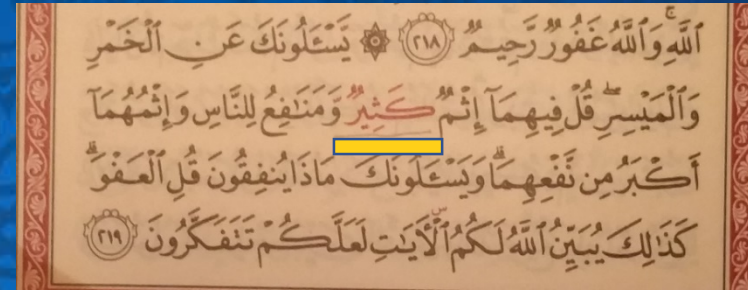 ٱللَّهِۚ وَٱللَّهُ غَفُورٌ رَّحِيمٌ ٢١٨ ۞ يَسْـَٔلُونَكَ عَنِ ٱلْخَمْرِ
وَٱلْمَيْسِرِۖ قُلْ فِيهِمَآ إِثْمٌ كَثِيرٌ وَمَنَٰفِعُ لِلنَّاسِ وَإِثْمُهُمَآ
أَكْبَرُ مِن نَّفْعِهِمَاۗ وَيَسْـَٔلُونَكَ مَاذَا يُنفِقُونَ قُلِ ٱلْعَفْوَۗ
كَذَٰلِكَ يُبَيِّنُ ٱللَّهُ لَكُمُ ٱلْأٓيَٰتِ لَعَلَّكُمْ تَتَفَكَّرُونَ ٢١٩